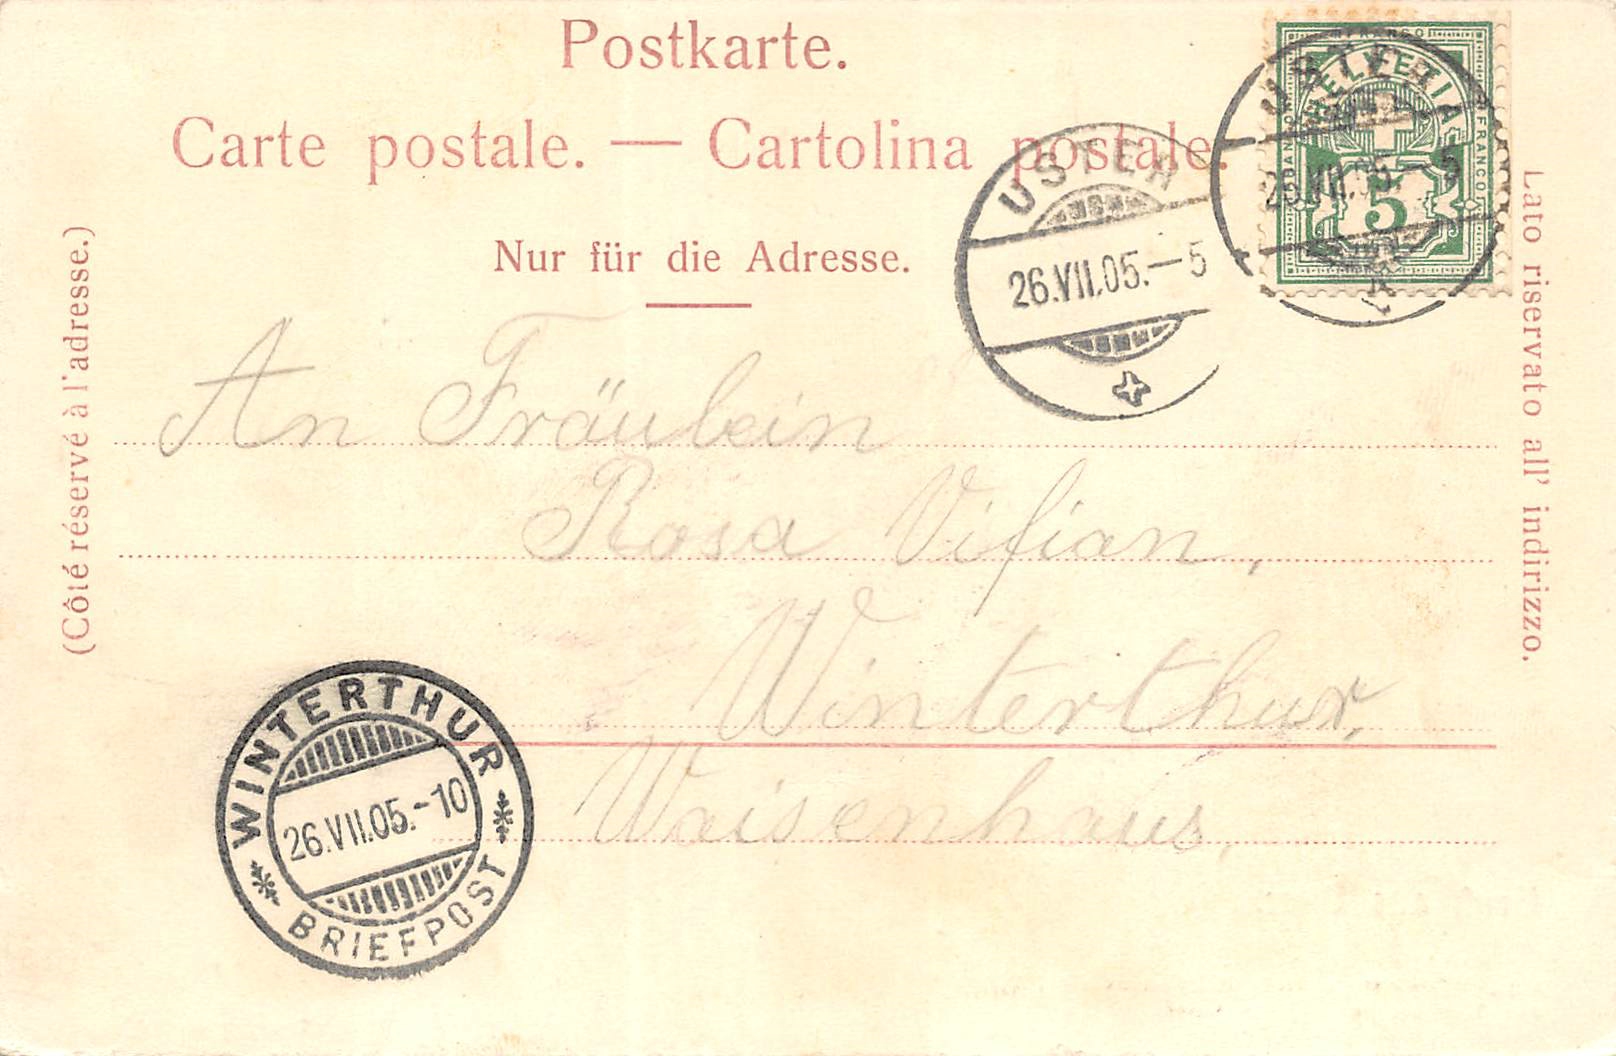 Postkarte.
Carte postale. — Cartolina postale.
Nur für die Adresse.
(Côté réservé à l'adresse.)
Lato riservato all' indirizzo.
FRANCO
HELVETIA
FRANCO
5
USTER
26.VII.05.-5
USTER
26.VII.05.—5
An Fräulein
Rosa Vifian,
Winterthur,
Waisenhaus.
WINTERTHUR
26.VII.05.-10
BRIEFPOST